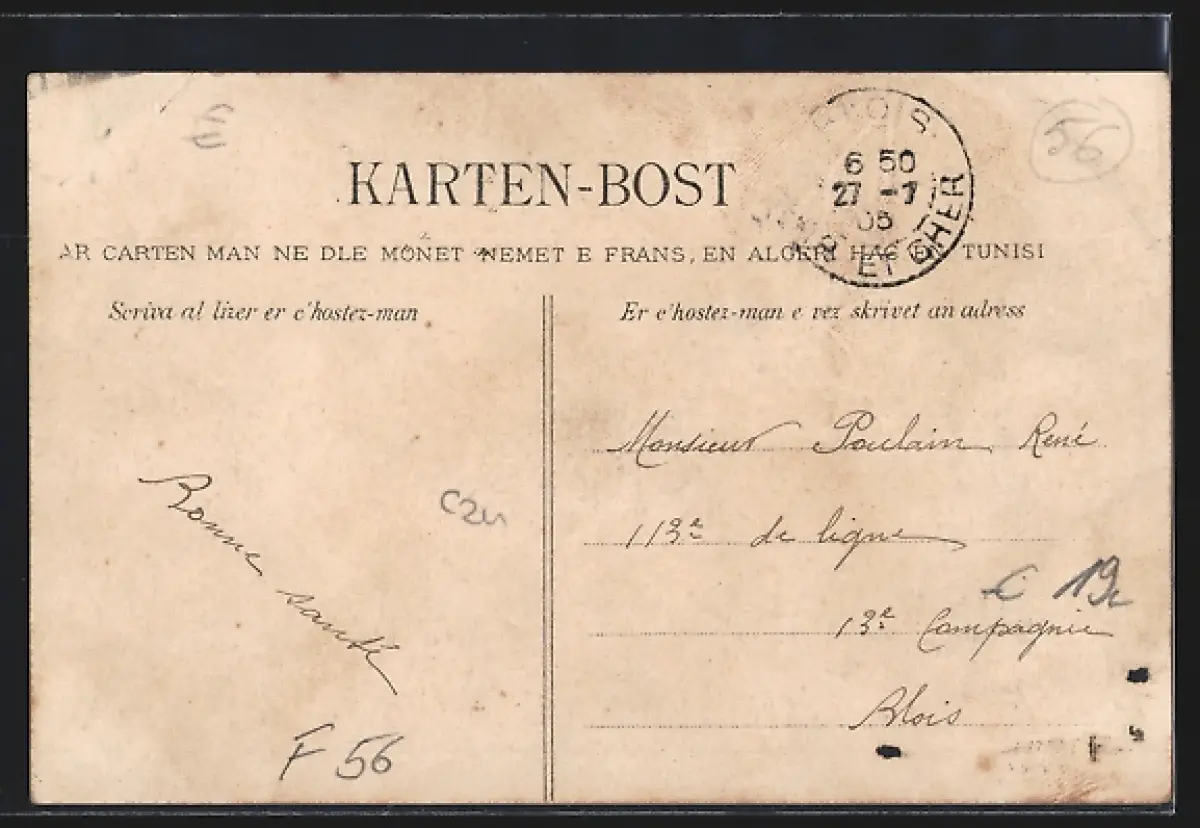 56
KARTEN-BOST
BLOIS
6 50
27 -7
05
ET CHER
AR CARTEN MAN NE DLE MONET NEMET E FRANS, EN ALGERI HAG EN TUNISI
Scriva al lizer er c'hostez-man
Er c'hostez-man e vez skrivet an adress
Bonne santé
Monsieur Poulain René
113e de ligne
13e Compagnie
Blois
F 56